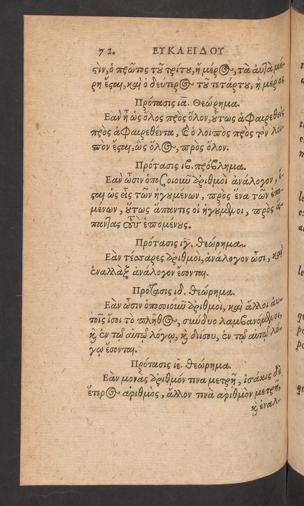 72. ΕΥΚΛΕΙΔΟΥ
σιν, ὁ πρῶτος τοῦ τρίτου, ἢ μέρος, τὰ αὐτὰ μέ-
ρη ἔσται, καὶ ὁ δεύτερος τοῦ τετάρτου, ἢ μέρος
Πρότασις ια. Θεώρημα.
Εὰν ᾖ ὡς ὅλος πρὸς ὅλον, οὕτως ἀφαιρεθεὶς
πρὸς ἀφαιρεθέντα, καὶ ὁ λοιπὸς πρὸς τὸν λοι-
πὸν ἔσται, ὡς ὅλος, πρὸς ὅλον.
Πρότασις ιβ. πρόβλημα.
Εὰν ὦσιν ὁποσοιοῦν ἀριθμοὶ ἀνάλογον, ἔ-
σται ὡς εἷς τῶν ἡγουμένων, πρὸς ἕνα τῶν ἑπο-
μένων, οὕτως ἅπαντες οἱ ἡγούμενοι, πρὸς ἅ-
παντας τοὺς ἑπομένους.
Πρότασις ιγ. θεώρημα.
Εὰν τέσσαρες ἀριθμοὶ, ἀνάλογον ὦσι, καὶ
ἐναλλὰξ ἀνάλογον ἔσονται.
Πρότασις ιδ. θεώρημα.
Εὰν ὦσιν ὁποσοιοῦν ἀριθμοὶ, καὶ ἄλλοι αὐ-
τοῖς ἴσοι τὸ πλῆθος, σύνδυο λαμβανόμενοι,
καὶ ἐν τῷ αὐτῷ λόγῳ, καὶ διίσου, ἐν τῷ αὐτῷ λό-
γῳ ἔσονται.
Πρότασις ιε. θεώρημα.
Εὰν μονὰς ἀριθμόν τινα μετρῇ, ἰσάκις δὲ
ἕτερος ἀριθμὸς, ἄλλον τινὰ ἀριθμὸν μετρῇ,
καὶ ἐναλ-